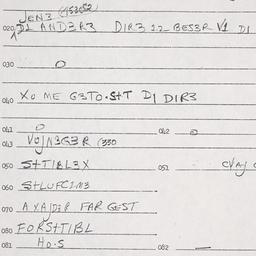 JEN3 (153652)
020 D1 AND3R3 DIR3 12 BES3R V1 D1
030 O
040 XO ME G3TO·S+T D1 DIR3
041 O 042 O
043 VOJN3G3R (330
050 S+TIBL3X 051
060 S+LUFC1N3
070 AXAJD3R FAR G3ST
080 FORS+TIBL
081 HO·S 082 —